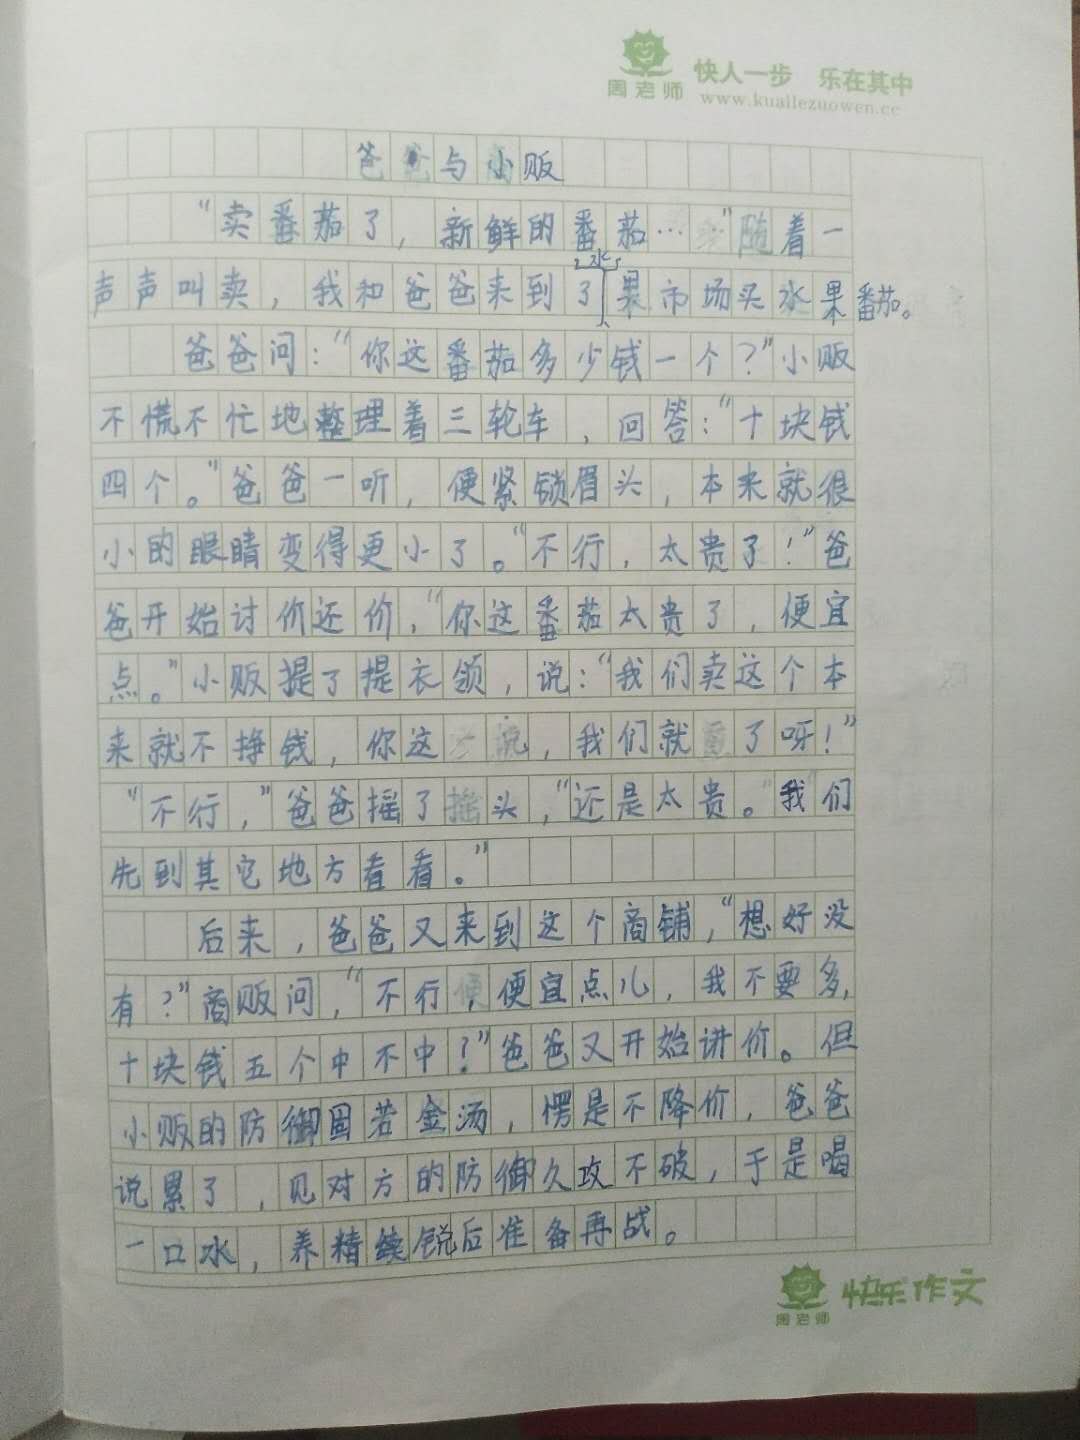 周老师 快人一步 乐在其中
www.kuailezuowen.cc
爸爸与小贩
“卖番茄了，新鲜的番茄…”随着一
声声叫卖，我和爸爸来到了水果市场买水果番茄。
爸爸问：“你这番茄多少钱一个？”小贩
不慌不忙地整理着三轮车，回答：“十块钱
四个。”爸爸一听，便紧锁眉头，本来就很
小的眼睛变得更小了。“不行，太贵了！”爸
爸开始讨价还价，“你这番茄太贵了，便宜
点。”小贩提了提衣领，说：“我们卖这个本
来就不挣钱，你这说，我们就了呀！”
“不行，”爸爸摇了摇头，“还是太贵。我们
先到其它地方看看。”
后来，爸爸又来到这个商铺，“想好没
有？”商贩问，“不行，便宜点儿，我不要多，
十块钱五个中不中？”爸爸又开始讲价。但
小贩的防御固若金汤，愣是不降价，爸爸
说累了，见对方的防御久攻不破，于是喝
一口水，养精续锐后准备再战。
周老师 快乐作文